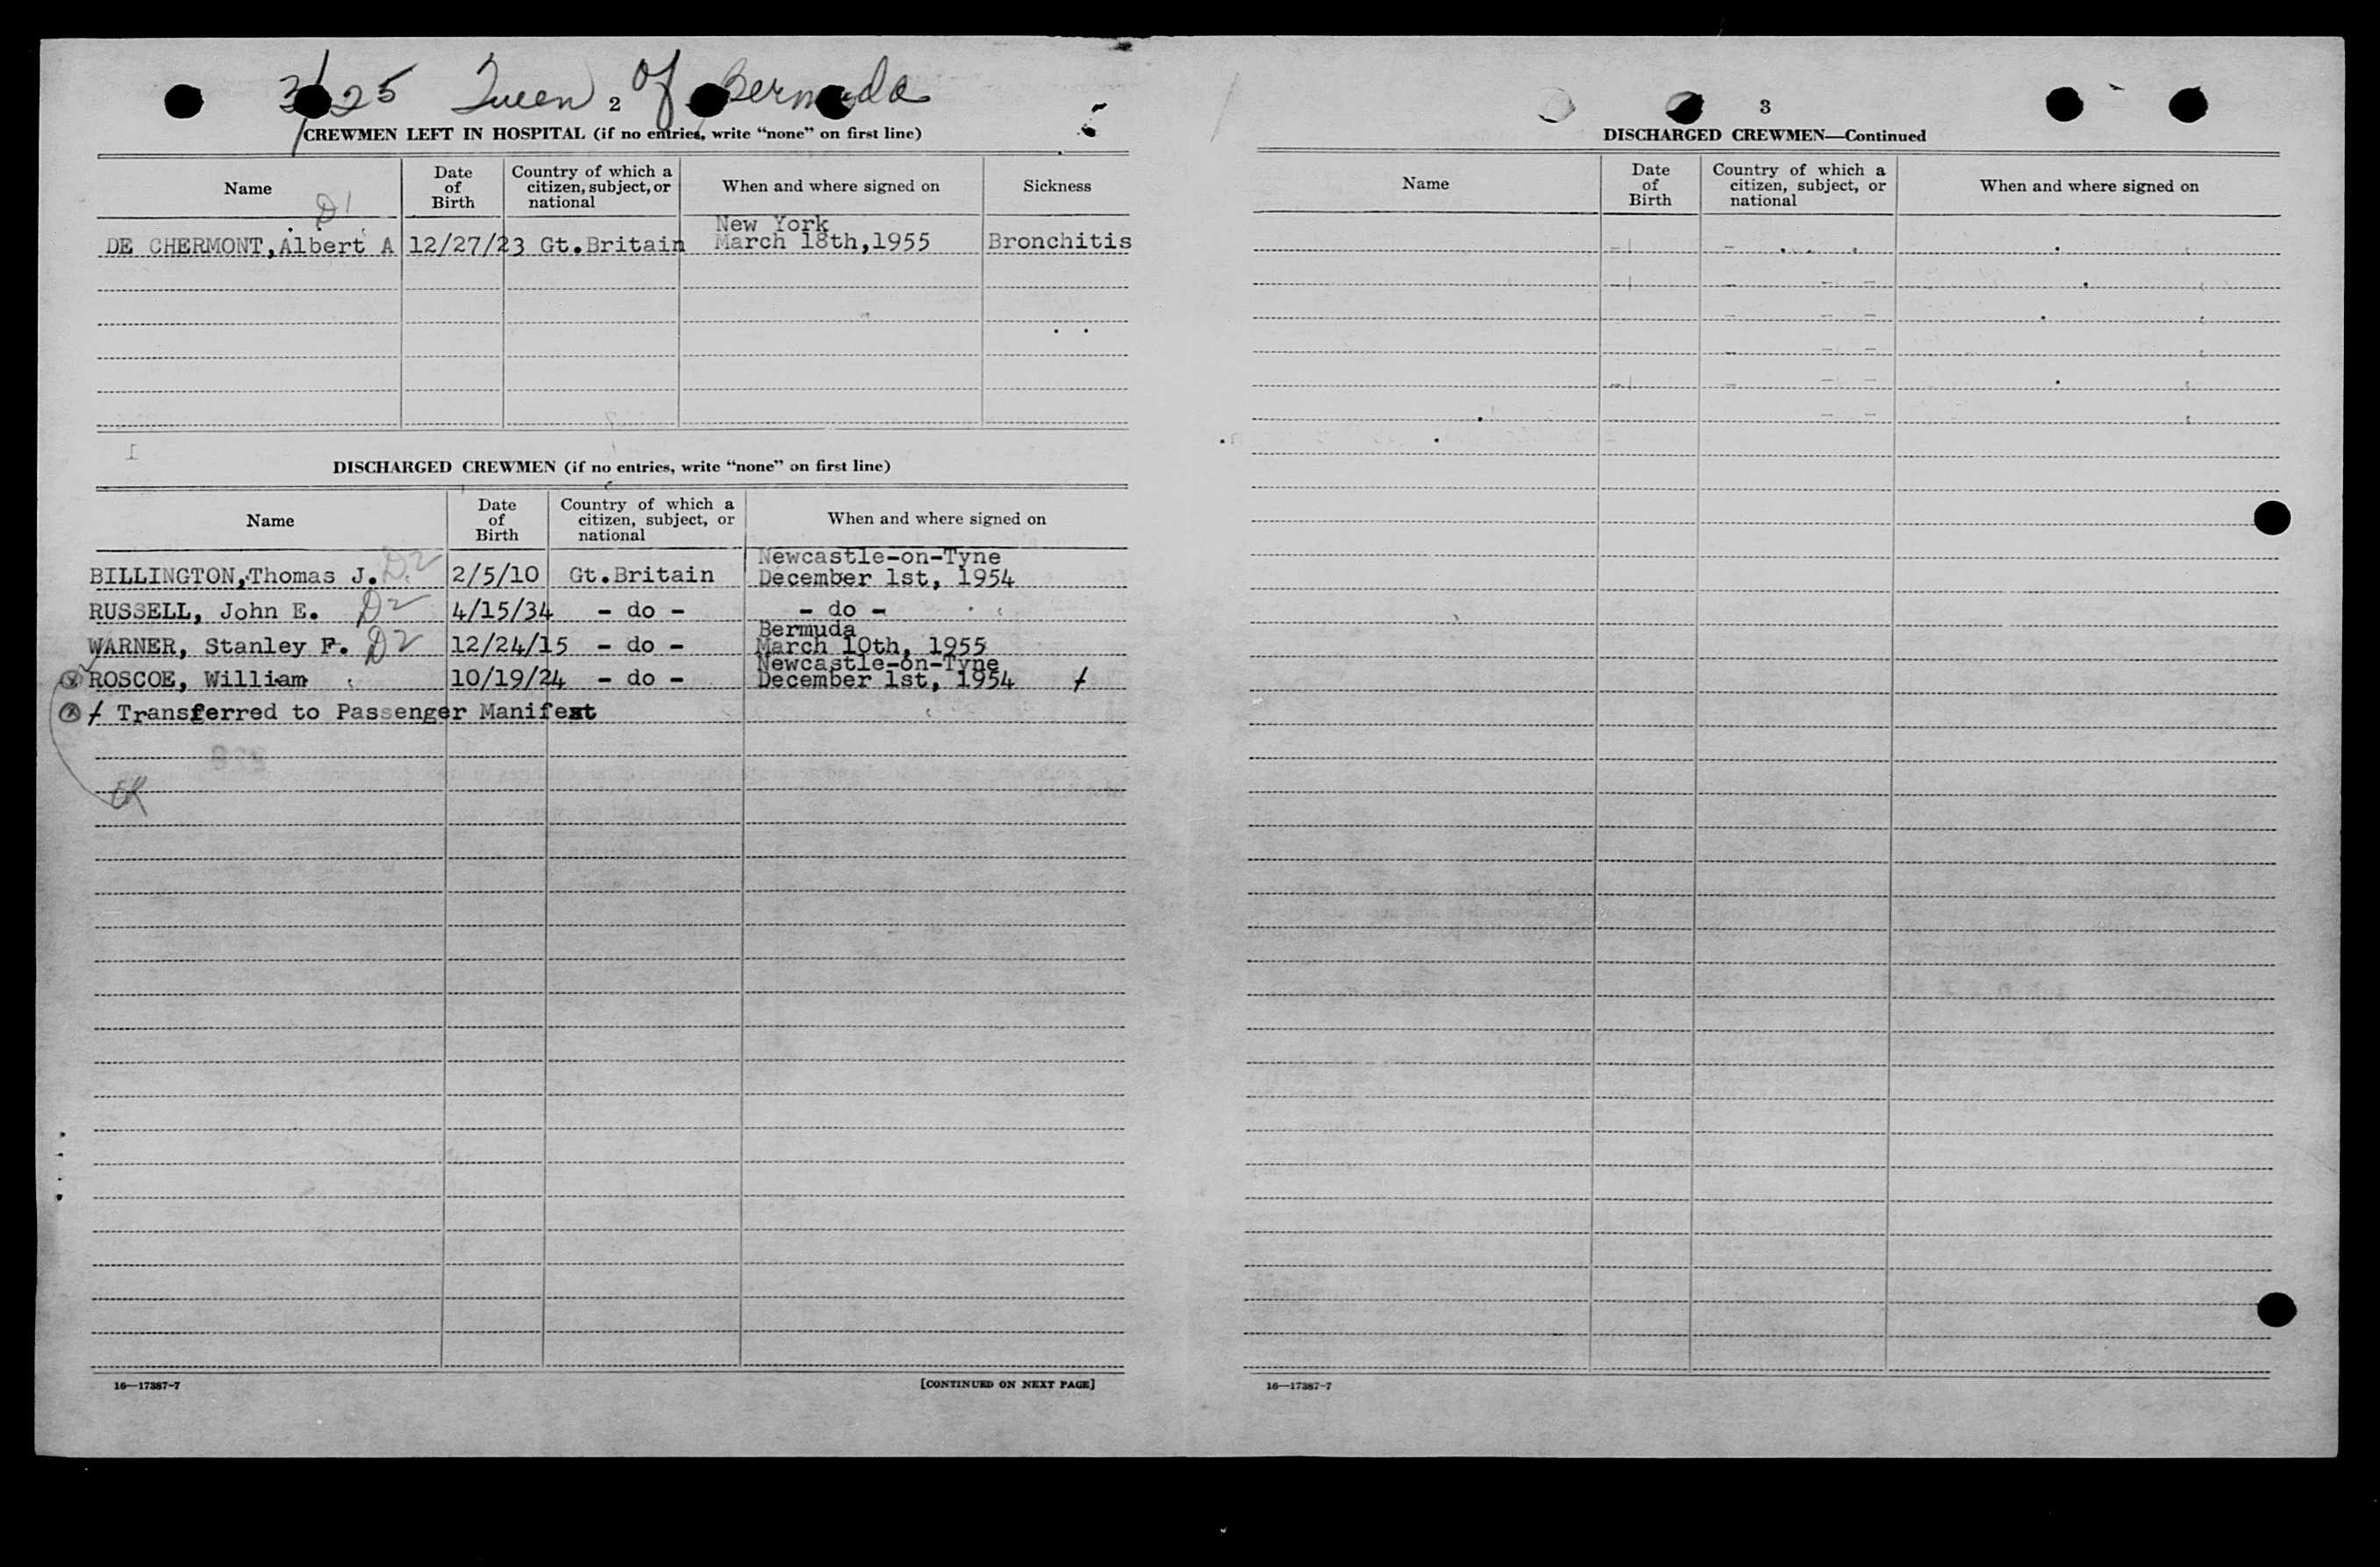 3/25 Queen of Bermuda
2
CREWMEN LEFT IN HOSPITAL (if no entries, write “none” on first line)
Name
Date of Birth
Country of which a citizen, subject, or national
When and where signed on
Sickness
D1
New York
DE CHERMONT, Albert A 12/27/23 Gt.Britain March 18th,1955 Bronchitis
DISCHARGED CREWMEN (if no entries, write “none” on first line)
Name
Date of Birth
Country of which a citizen, subject, or national
When and where signed on
Newcastle-on-Tyne
BILLINGTON, Thomas J. D2 2/5/10 Gt.Britain December 1st, 1954
RUSSELL, John E. D2 4/15/34 - do - - do -
Bermuda
WARNER, Stanley F. D2 12/24/15 - do - March 10th, 1955
Newcastle-on-Tyne
ROSCOE, William 10/19/24 - do - December 1st, 1954 /
/ Transferred to Passenger Manifest
16—17387-7
[CONTINUED ON NEXT PAGE]
3
DISCHARGED CREWMEN—Continued
Name
Date of Birth
Country of which a citizen, subject, or national
When and where signed on
16—17387-7